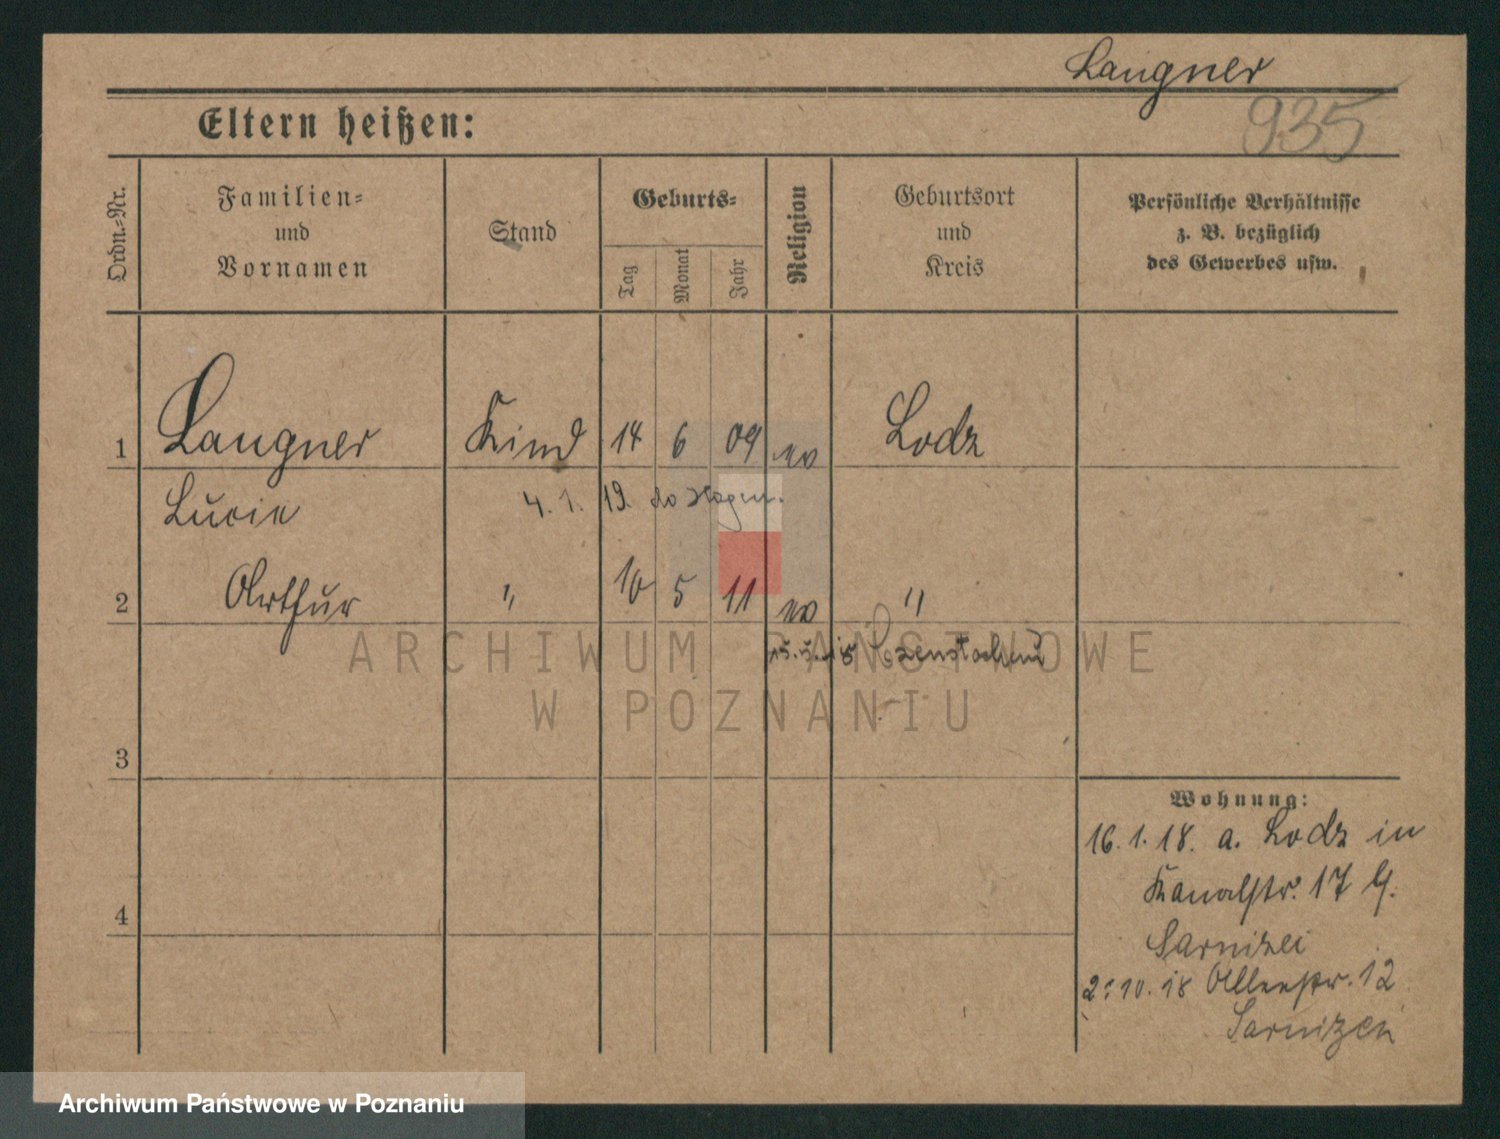 Langner
935
Eltern heißen:
Ordn.-Nr.
Familien-
und
Vornamen
Stand
Geburts-
Tag
Monat
Jahr
Religion
Geburtsort
und
Kreis
Persönliche Verhältnisse
z. B. bezüglich
des Gewerbes usw.
1 Langner Kind 14 6 09 Lodz
Lucie
4. 1. 19.
2 Arthur " 10 5 11 "
Czenstochau
ARCHIWUM PAŃSTWOWE
W POZNANIU
3
4
Wohnung:
16. 1. 18. a. Lodz in
Kanalstr. 17
2. 10. 18 12
Archiwum Państwowe w Poznaniu